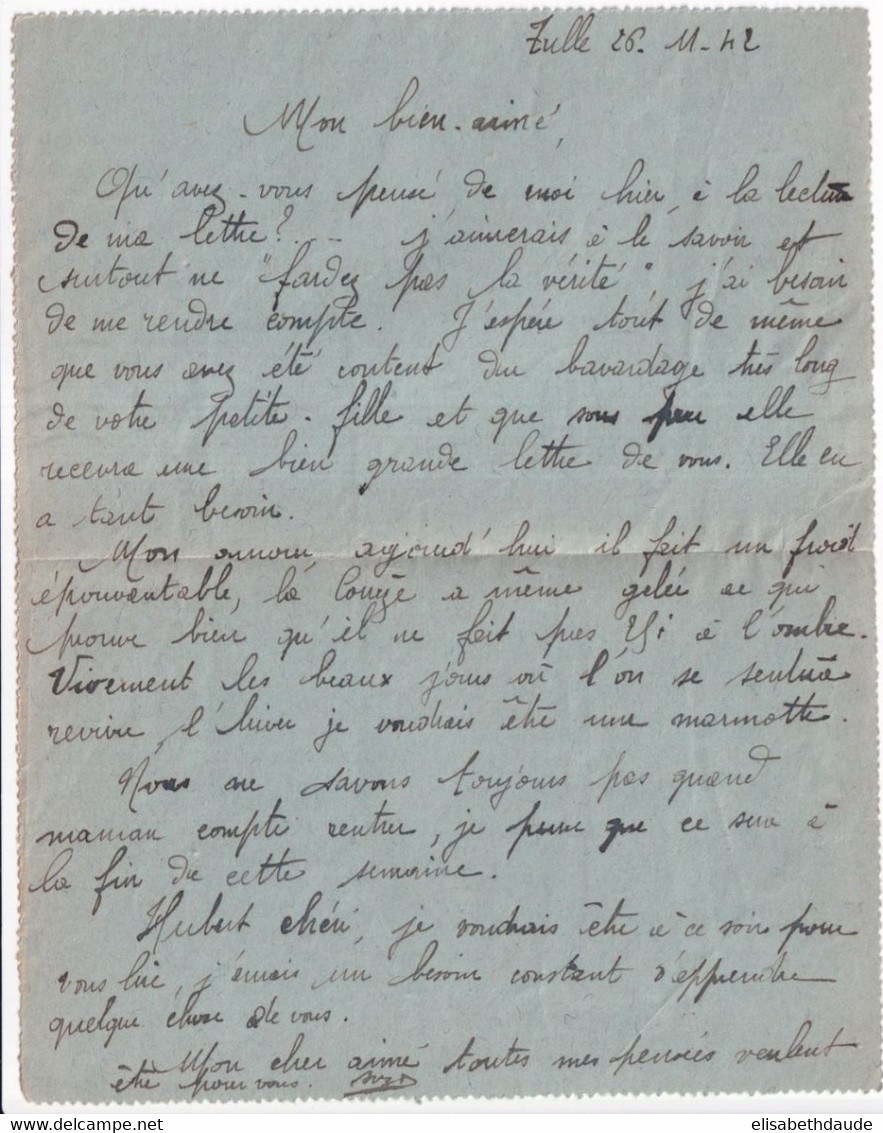 Tulle 26-11-42
Mon bien-aimé,
Qu'avez-vous pensé de moi hier, à la lecture
de ma lettre?... j'aimerais à le savoir et
surtout ne "fardez pas la vérité", j'ai besoin
de me rendre compte. J'espère tout de même
que vous avez été content du bavardage très long
de votre petite-fille et que sous peu elle
recevra une bien grande lettre de vous. Elle en
a tant besoin.
Mon amour, aujourd'hui il fait un froid
épouvantable, la Corrèze a même gelée ce qui
prouve bien qu'il ne fait pas 45 à l'ombre.
Vivement les beaux jours où l'on se sentira
revivre, l'hiver je voudrais être une marmotte.
Nous ne savons toujours pas quand
maman compte rentrer, je pense que ce sera à
la fin de cette semaine.
Hubert chéri, je voudrais être à ce soir pour
vous lire, j'ai un besoin constant d'apprendre
quelque chose de vous.
Mon cher aimé toutes mes pensées veulent
être pour vous.
elisabethdaude